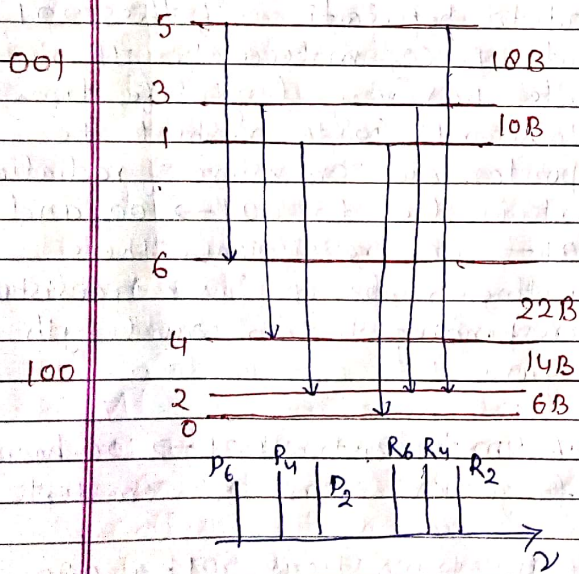 5
001
18B
3
10B
1
6
22B
4
14B
100
2
6B
0
P6 P4 P2 R6 R4 R2
ν